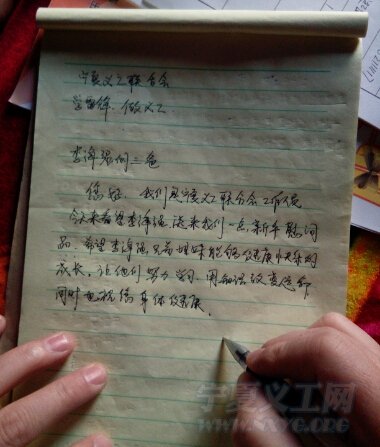 宁夏义工联合会
学雷锋 做义工
李泽强的二爸
您好，我们是宁夏义工联合会工作人员
今天来看望李泽强，送来我们一点新年慰问
品，希望李泽强兄弟姐妹能够健康快乐的
成长，让他们努力学习，用知识改变命运
同时也祝您身体健康。
宁夏义工网
WWW.NXYG.ORG